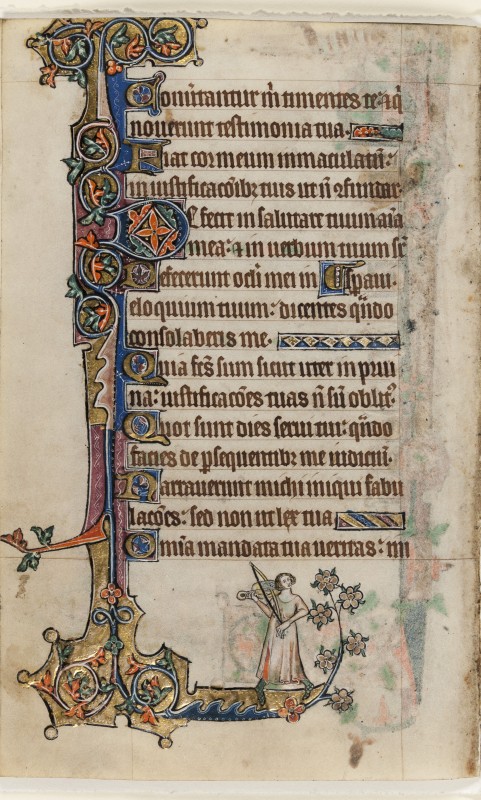 Conu̅tantur m̅ timentes te: ⁊ q̅
nouerunt testimonia tua.
Fiat cor meum immaculatu̅:
in iustificaco̅ibꝫ tuis ut n̅ ꝯfundar
Defecit in salutare tuum ai̅a
mea: ⁊ in uerbum tuum sꝑ
Defecerunt oc̅li mei in
eloquium tuum: dicentes qn̅do
consolaberis me.
Quia fc̅s sum sicut uter in prui
na: iustificaco̅es tuas n̅ su̅ oblitꝰ.
Quot sunt dies serui tui: qn̅do
facies de ꝑsequentibꝫ me iudiciu̅.
Narrauerunt michi iniqui fabu
laco̅es: sed non ut lex tua
Omi̅a mandata tua ueritas: ini